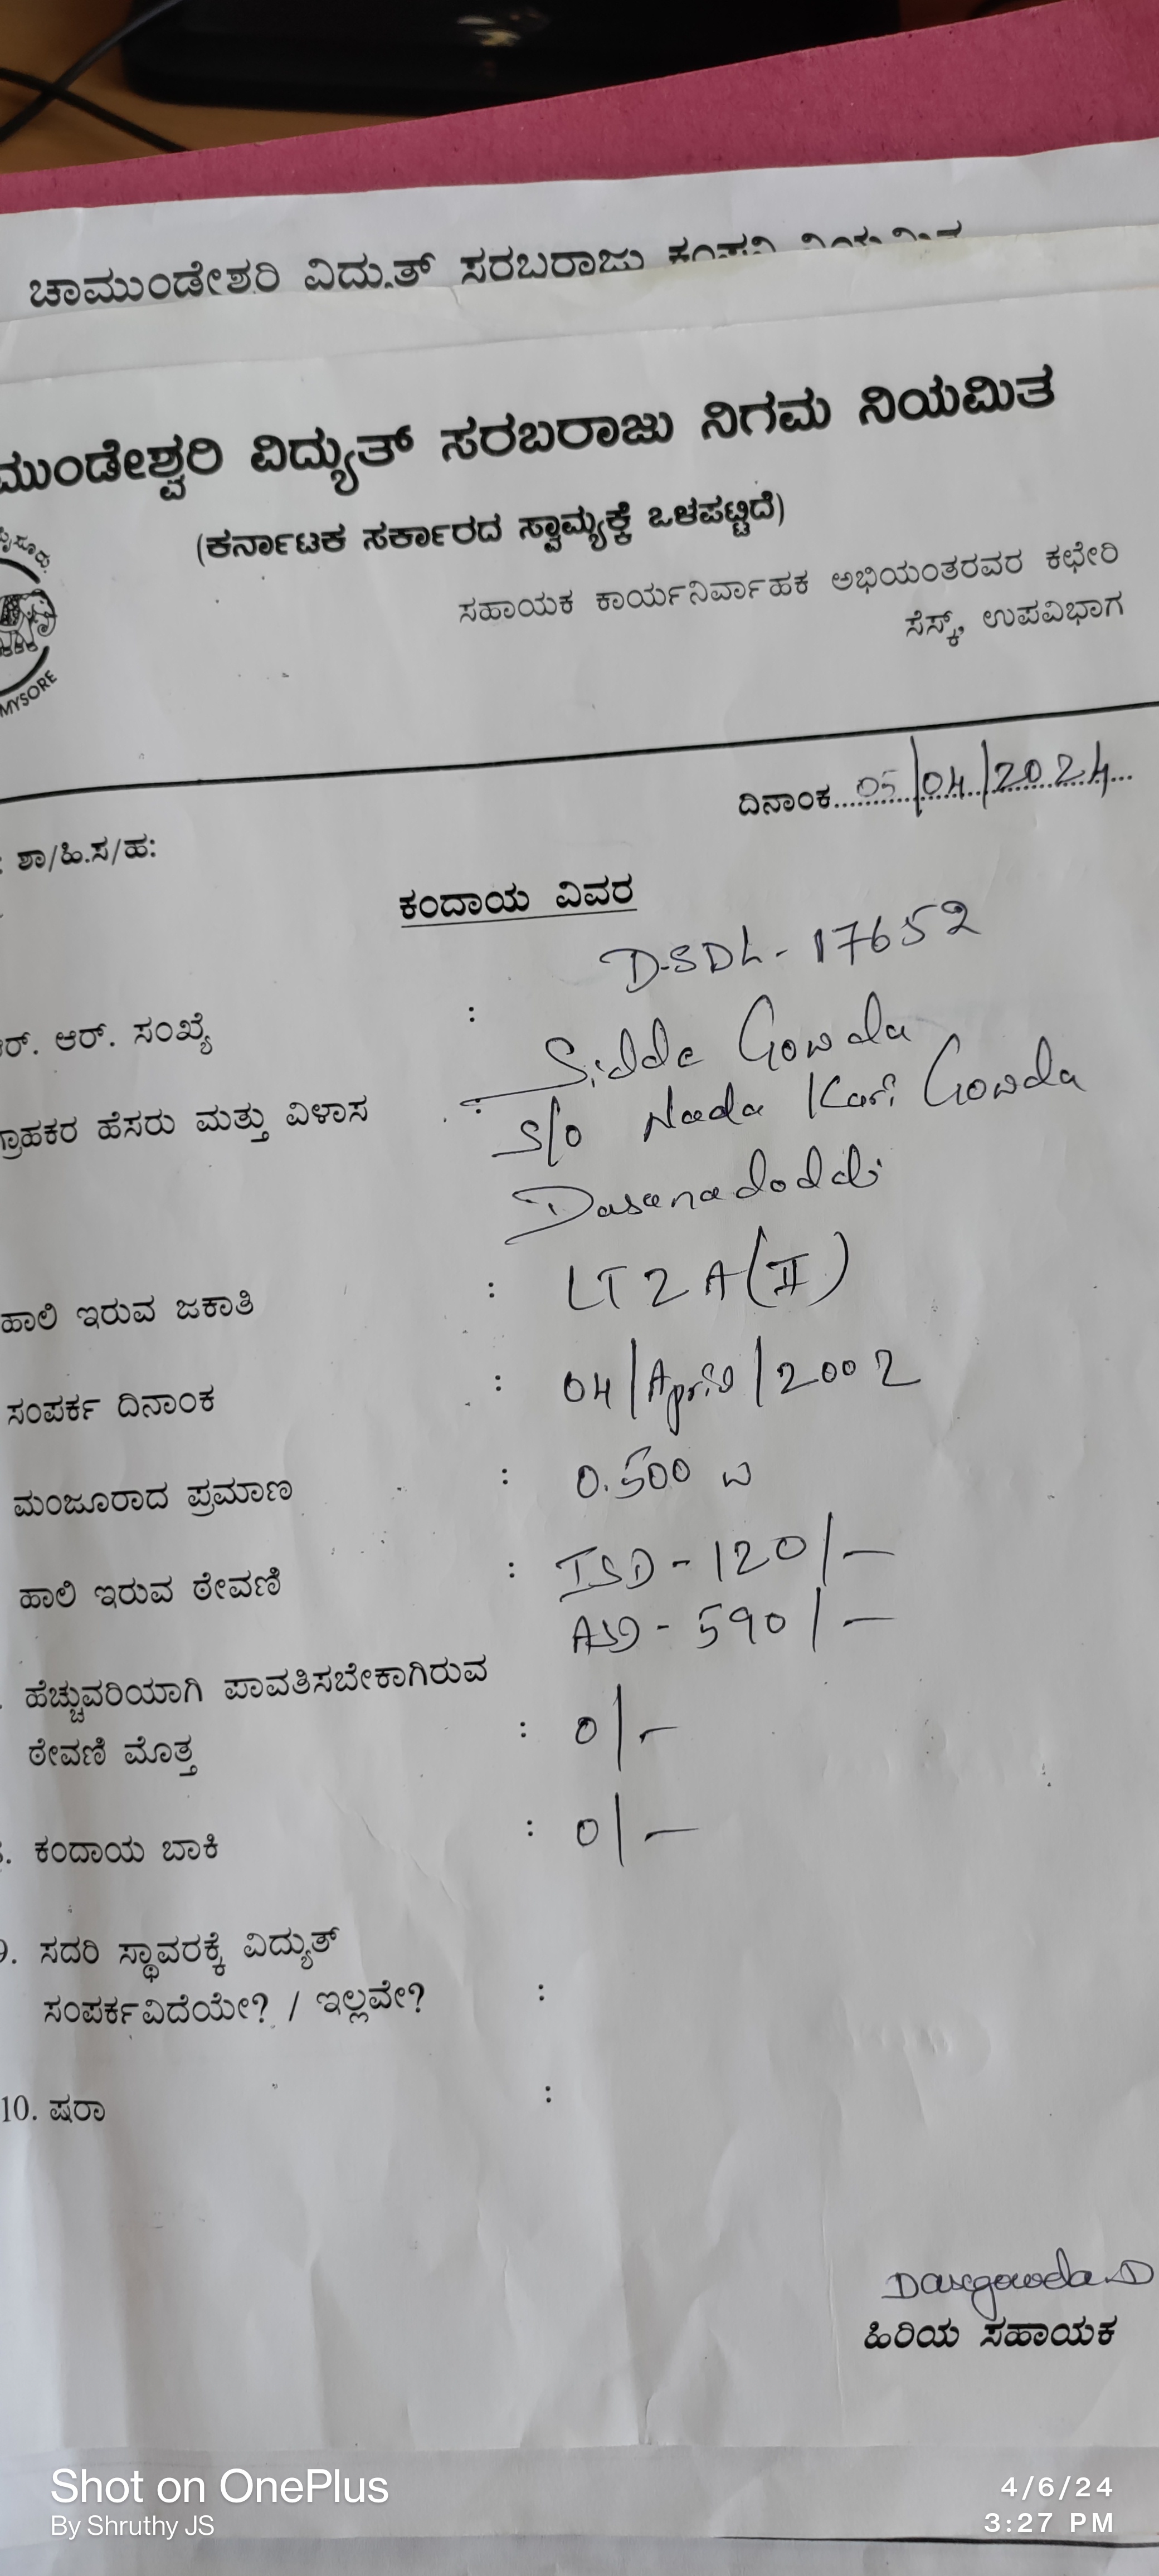 ಚಾಮುಂಡೇಶ್ವರಿ ವಿದ್ಯುತ್ ಸರಬರಾಜು ಕಂಪನಿ ನಿಯಮಿತ
ಮುಂಡೇಶ್ವರಿ ವಿದ್ಯುತ್ ಸರಬರಾಜು ನಿಗಮ ನಿಯಮಿತ
(ಕರ್ನಾಟಕ ಸರ್ಕಾರದ ಸ್ವಾಮ್ಯಕ್ಕೆ ಒಳಪಟ್ಟಿದೆ)
ಸಹಾಯಕ ಕಾರ್ಯನಿರ್ವಾಹಕ ಅಭಿಯಂತರವರ ಕಛೇರಿ
ಸೆಸ್ಕ್, ಉಪವಿಭಾಗ
MYSORE
ದಿನಾಂಕ 05/04/2024
: ಶಾ/ಹಿ.ಸ/ಹ:
ಕಂದಾಯ ವಿವರ
ಆರ್. ಆರ್. ಸಂಖ್ಯೆ : DSDL-17652
ಗ್ರಾಹಕರ ಹೆಸರು ಮತ್ತು ವಿಳಾಸ : Sidde Gowda
S/o Nada Kari Gowda
Dasanadoddi
ಹಾಲಿ ಇರುವ ಜಕಾತಿ : LT2A(II)
ಸಂಪರ್ಕ ದಿನಾಂಕ : 04/April/2002
ಮಂಜೂರಾದ ಪ್ರಮಾಣ : 0.500 W
ಹಾಲಿ ಇರುವ ಠೇವಣಿ : ISD-120/-
ASD-590/-
. ಹೆಚ್ಚುವರಿಯಾಗಿ ಪಾವತಿಸಬೇಕಾಗಿರುವ
ಠೇವಣಿ ಮೊತ್ತ : 0/-
. ಕಂದಾಯ ಬಾಕಿ : 0/-
9. ಸದರಿ ಸ್ಥಾವರಕ್ಕೆ ವಿದ್ಯುತ್
ಸಂಪರ್ಕವಿದೆಯೇ? / ಇಲ್ಲವೇ? :
10. ಷರಾ :
Dasegowda.D
ಹಿರಿಯ ಸಹಾಯಕ
Shot on OnePlus
By Shruthy JS
4/6/24
3:27 PM